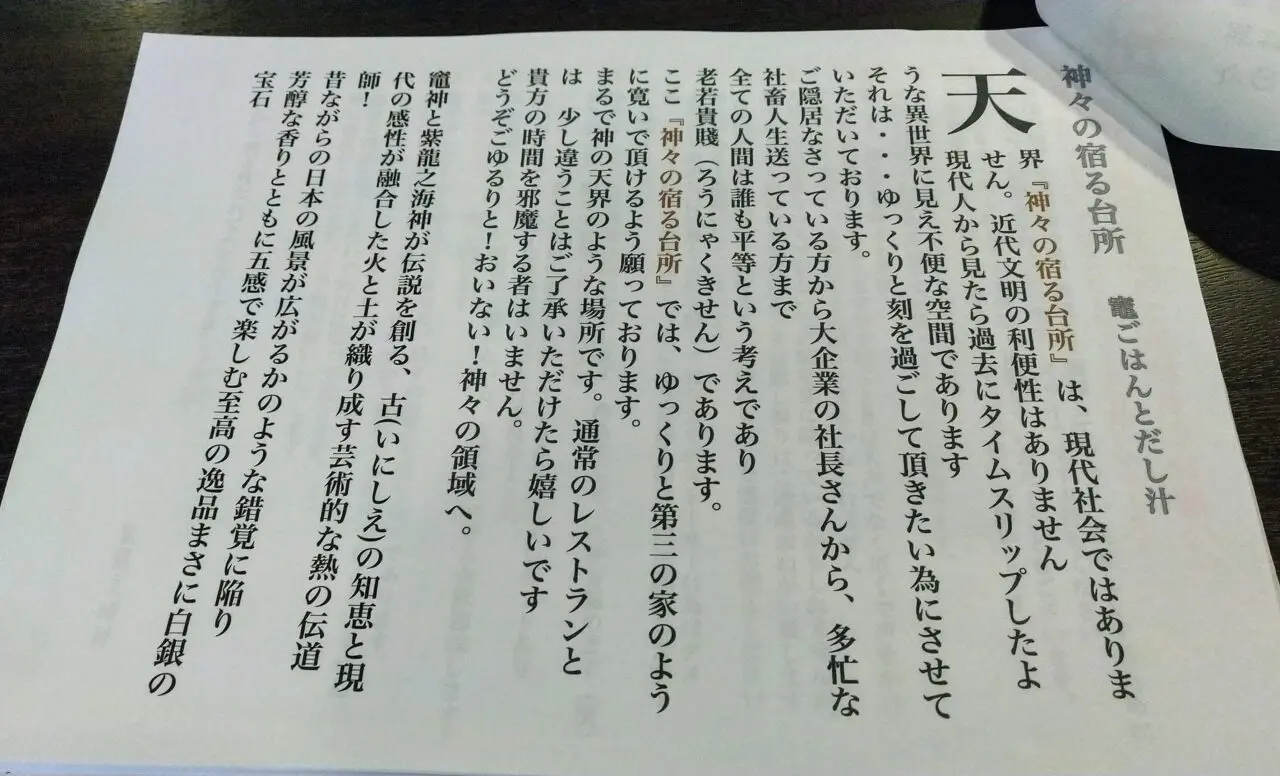 神々の宿る台所　竈ごはんとだし汁
天界『神々の宿る台所』は、現代社会ではありま
せん。近代文明の利便性はありません
現代人から見たら過去にタイムスリップしたよ
うな異世界に見え不便な空間であります
それは・・・ゆっくりと刻を過ごして頂きたい為にさせて
いただいております。
ご隠居なさっている方から大企業の社長さんから、多忙な
社畜人生送っている方まで
全ての人間は誰も平等という考えであり
老若貴賤（ろうにゃくきせん）であります。
ここ『神々の宿る台所』では、ゆっくりと第三の家のよう
に寛いで頂けるよう願っております。
まるで神の天界のような場所です。通常のレストランと
は　少し違うことはご了承いただけたら嬉しいです
貴方の時間を邪魔する者はいません。
どうぞごゆるりと！おいない！神々の領域へ。
竈神と紫龍之海神が伝説を創る、古(いにしえ)の知恵と現
代の感性が融合した火と土が織り成す芸術的な熱の伝道
師！
昔ながらの日本の風景が広がるかのような錯覚に陥り
芳醇な香りとともに五感で楽しむ至高の逸品まさに白銀の
宝石